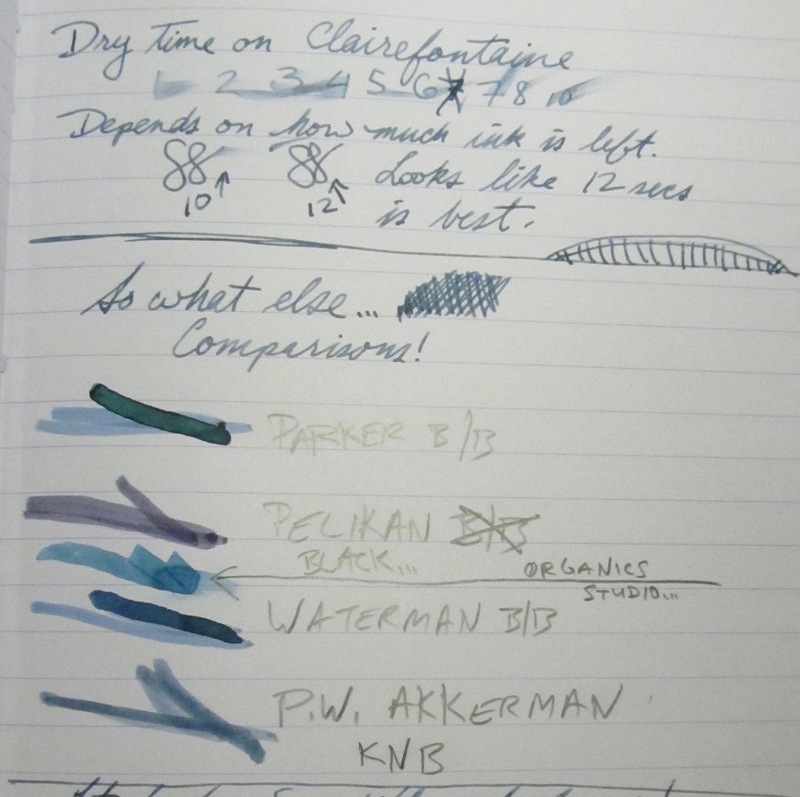 Dry time on Clairefontaine
1 2 3 4 5 6 7 8 10
Depends on how much ink is left.
88 88 Looks like 12 secs
10 12 is best.
So what else...
Comparisons!
PARKER B/B
PELIKAN B/B
BLACK... ORGANICS
STUDIO...
WATERMAN B/B
P.W. AKKERMAN
KNB